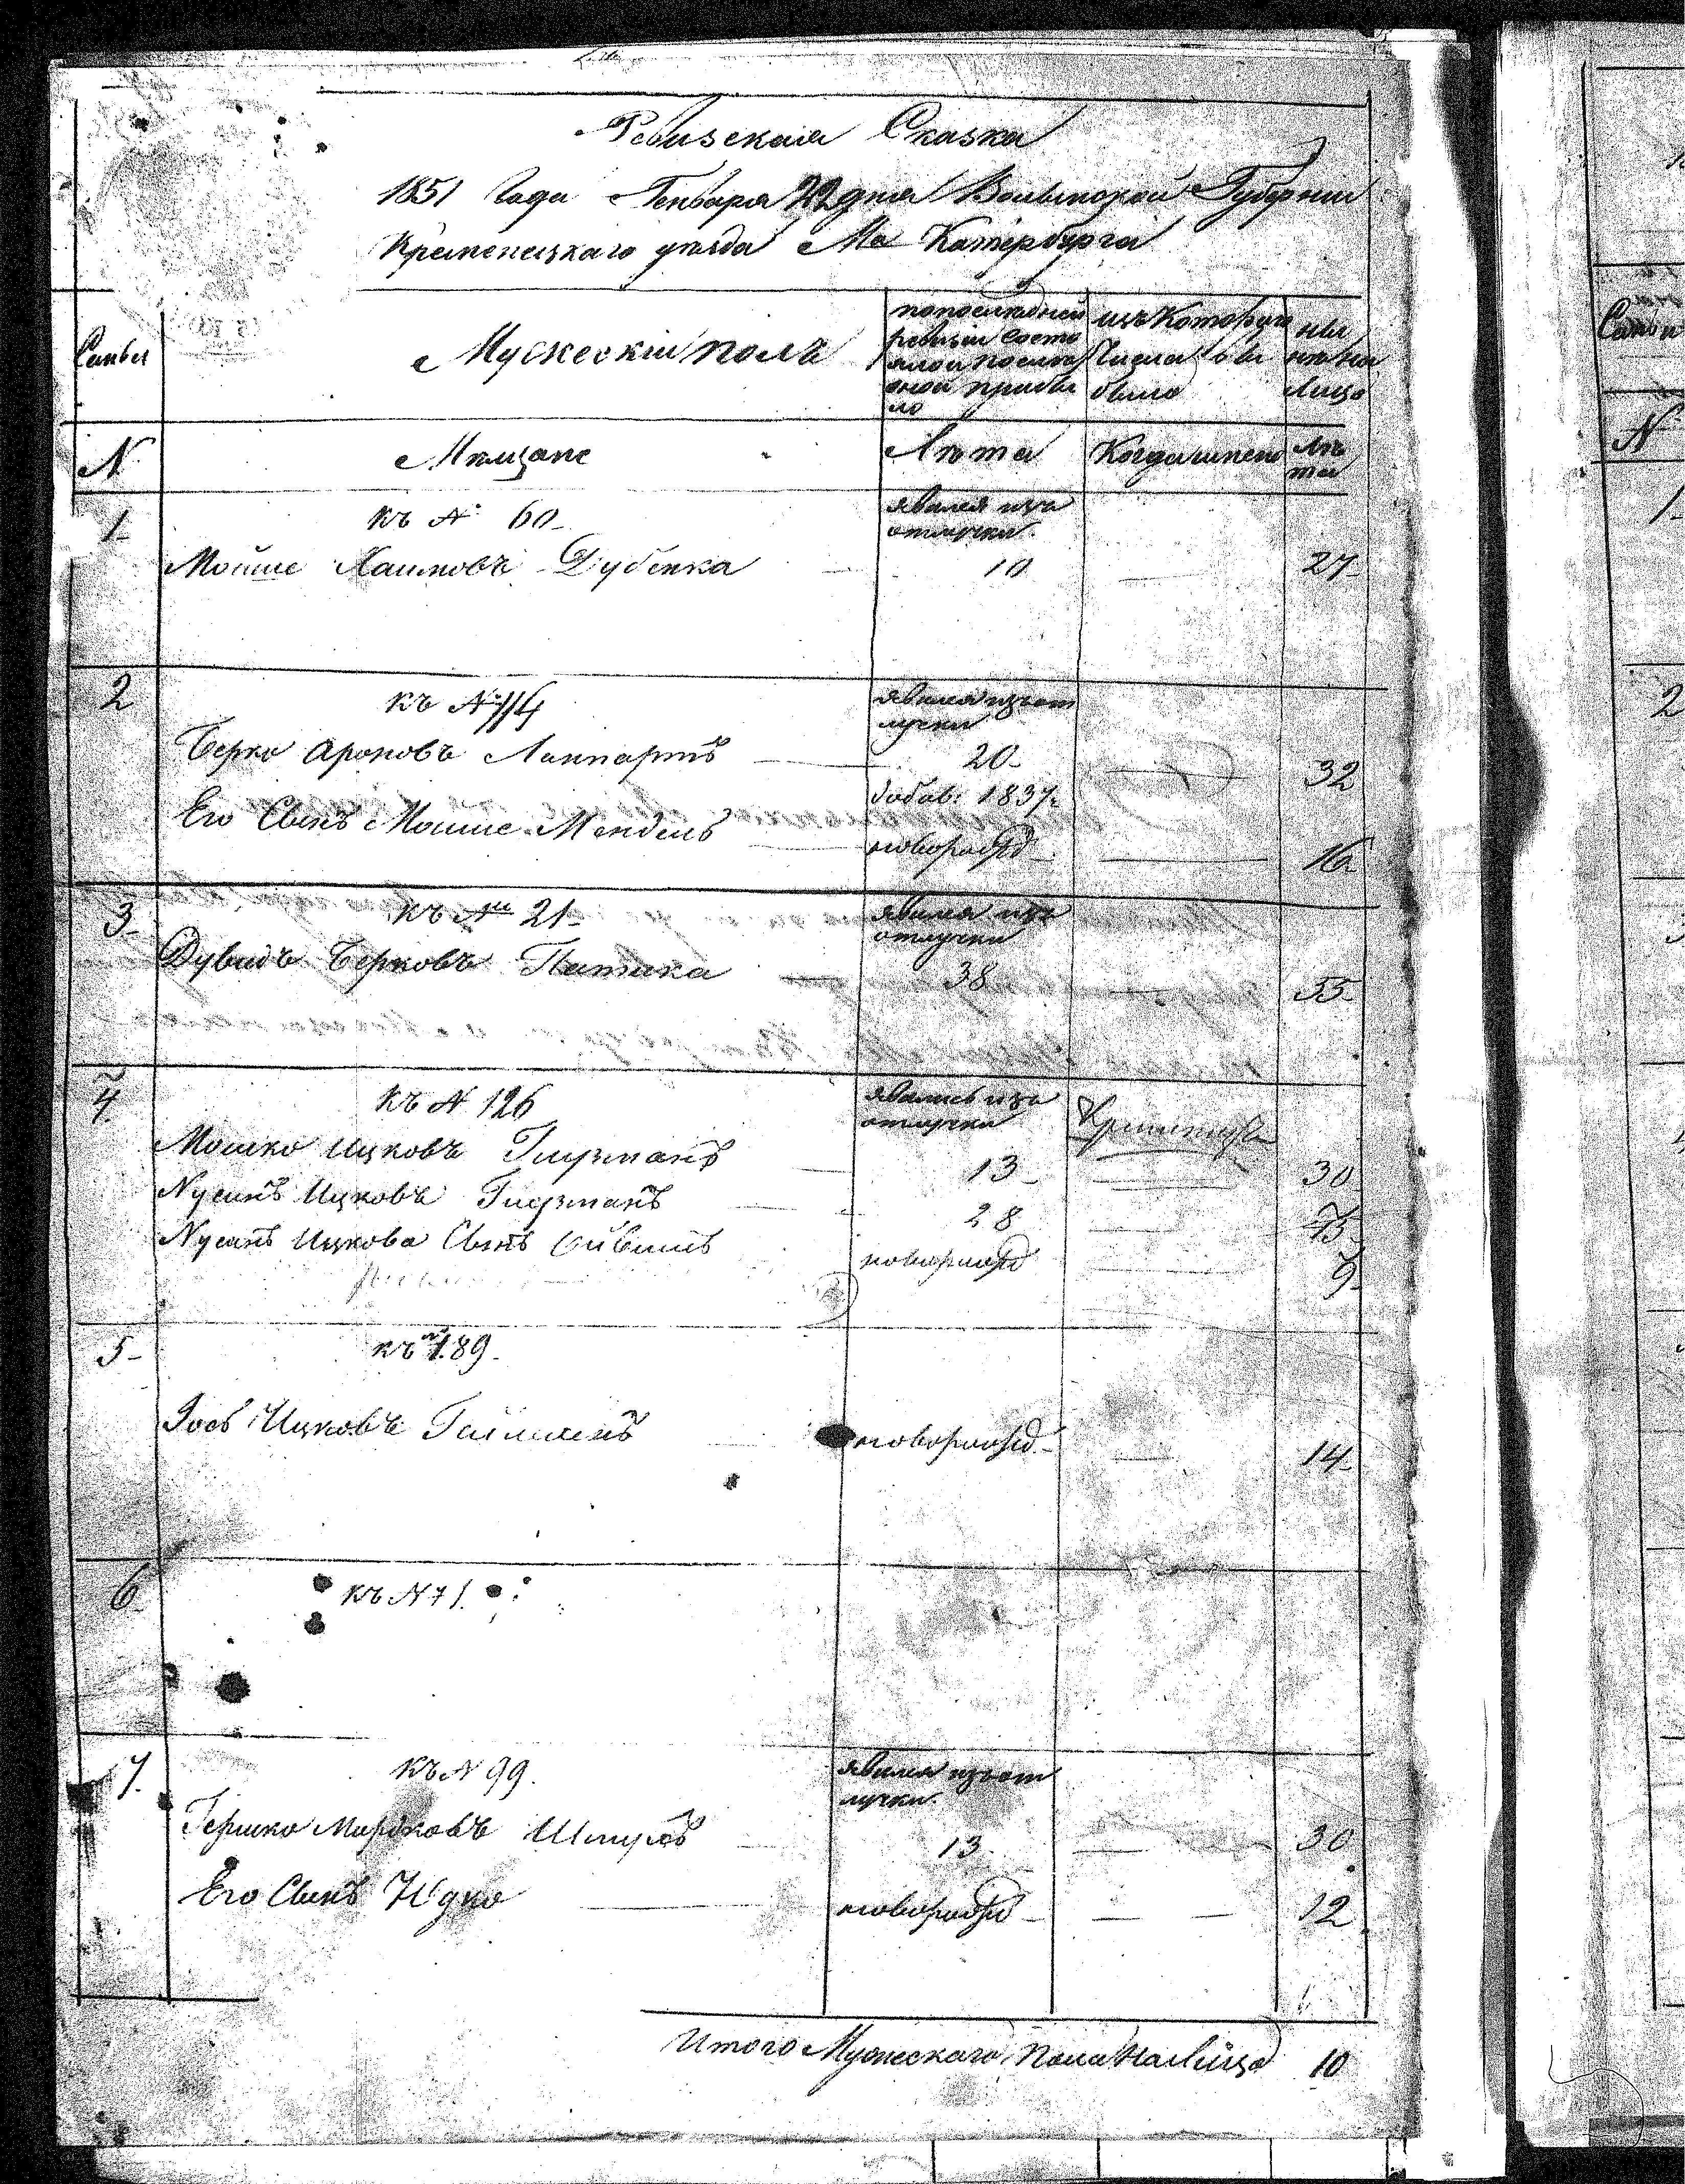 Ревизская Сказка
1851 Года Генваря 22 дня Волынской Губернии
Кременецкаго уезда Мка Катербурга
Семьи
Мужескiй полъ
по последней ревизiи состояло и после оной прибыло
изъ Которуго Числа выбыло
ныне на Лицо
N
Мещане
Лета
Когда имено
Лета
1
къ № 60
явился изъ отлучки
Мойше Хаимовъ Дубенка
10
27
2
къ № 114
явился изъ отлучки
Берко Ароновъ Ланпартъ
20
32
добав: 1837
Его Сынъ Мошие Мендель
новорожд
16
3
къ № 21
явился изъ отлучки
Дувидъ Берковъ Патика
38
55
4
къ N 126
явились изъ отлучки
Мошко Ицковъ Глузманъ
13
30
Нусинъ Ицковъ Глузманъ
28
Нусинъ Ицкова Сынъ
новорожд
9
5
къ № 189
Иось Ицковъ
новорожд
14
6
къ N 71.
7.
къ N 99.
явился изъ отлучки
Гершко Мортковъ
13
30
Его Сынъ Юдко
новорожд
12
Итого Мужескаго Пола На Лицо 10
Семьи
N
1
2